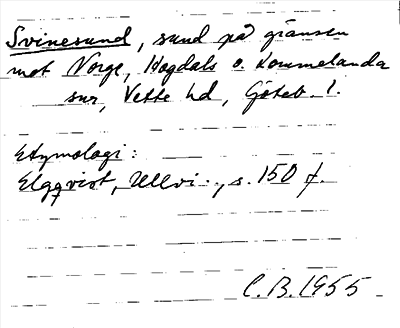 Svinesund, sund på gränsen
mot Norge, Hogdals o. Lommelanda
snr, Vette hd, Göteb. l.
Etymologi:
Elgqvist, Ullvi.., s. 150 f.
C.B. 1955